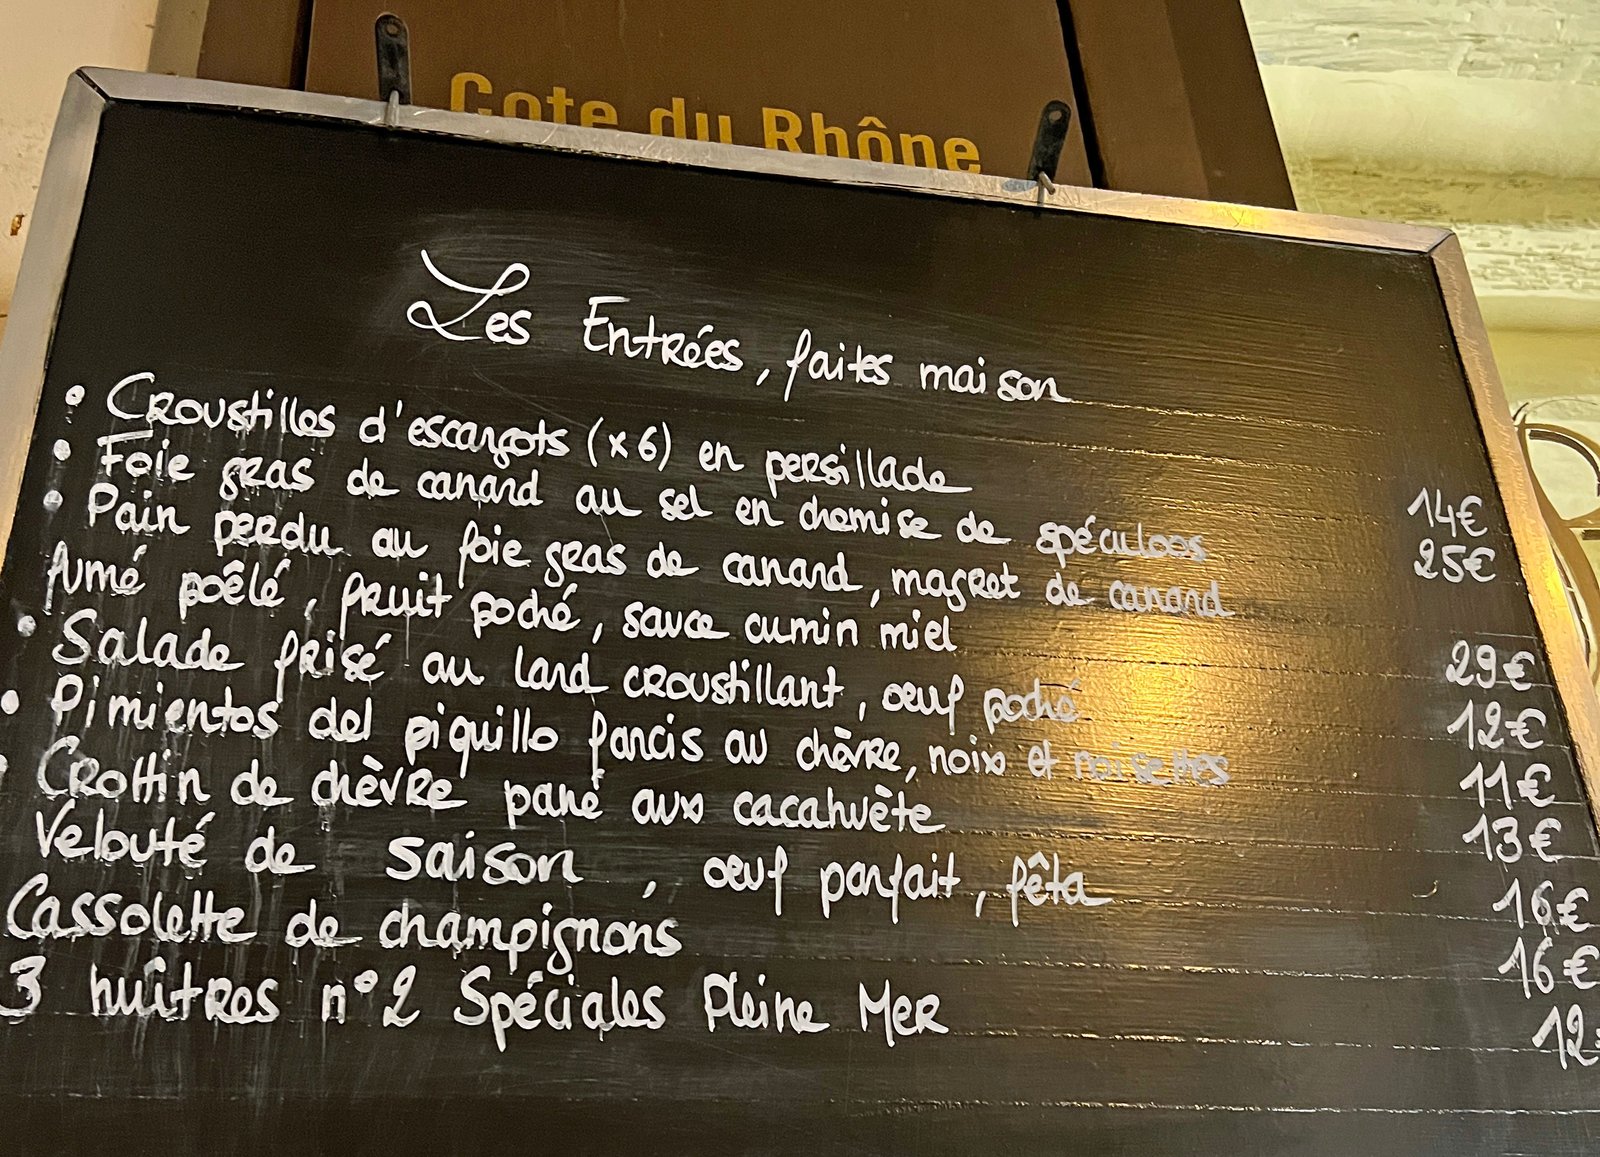 Cote du Rhône
Les Entrées, faites maison
• Croustilles d'escargots (x6) en persillade 14€
• Foie gras de canard au sel en chemise de spéculoos 25€
• Pain perdu au foie gras de canard, magret de canard
fumé poêlé, fruit poché, sauce cumin miel 29€
• Salade frisé au lard croustillant, oeuf poché 12€
• Pimientos del piquillo farcis au chèvre, noix et noisettes 11€
Crottin de chèvre pané aux cacahuète 13€
Velouté de saison, oeuf parfait, fêta 16€
Cassolette de champignons 16€
3 huîtres n°2 Spéciales Pleine Mer 12